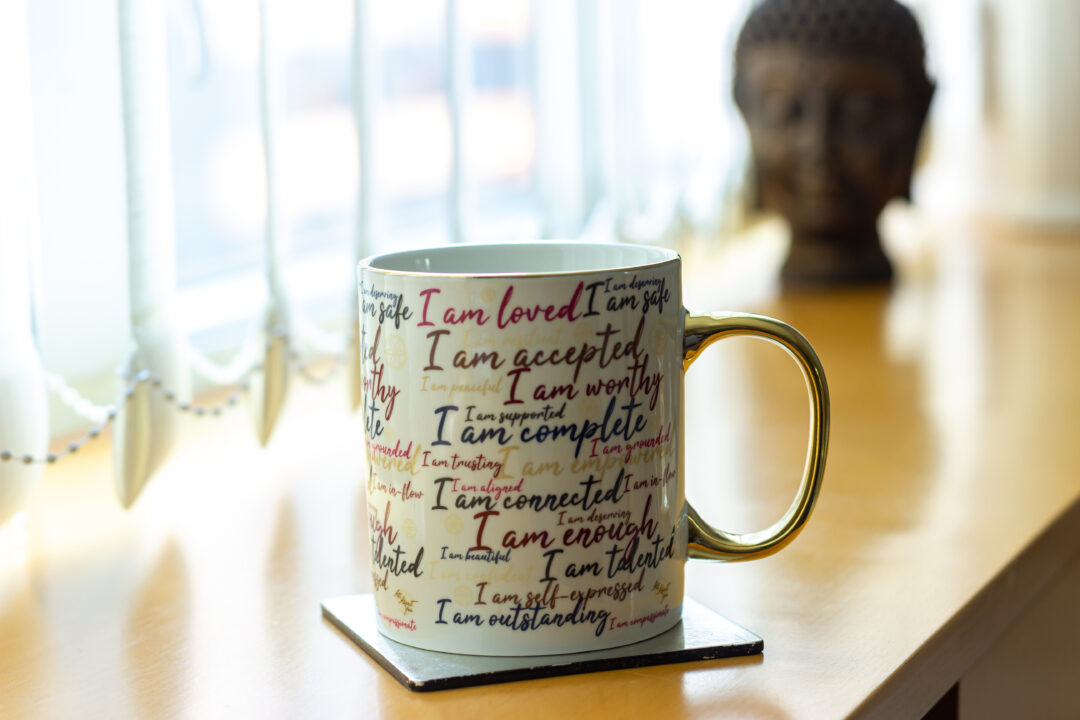 I am deserving
I am deserving
am safe
I am loved
I am safe
I am resilient
I am accepted
I am peaceful
I am worthy
orthy
I am supported
I am complete
ete
I am grounded
grounded
I am trusting
I am empowered
I am aligned
I am in-flow
I am in-flow
I am connected
I am deserving
I am enough
I am beautiful
I am talented
talented
I am confident
I am self-expressed
I am outstanding
I am compassionate
compassionate